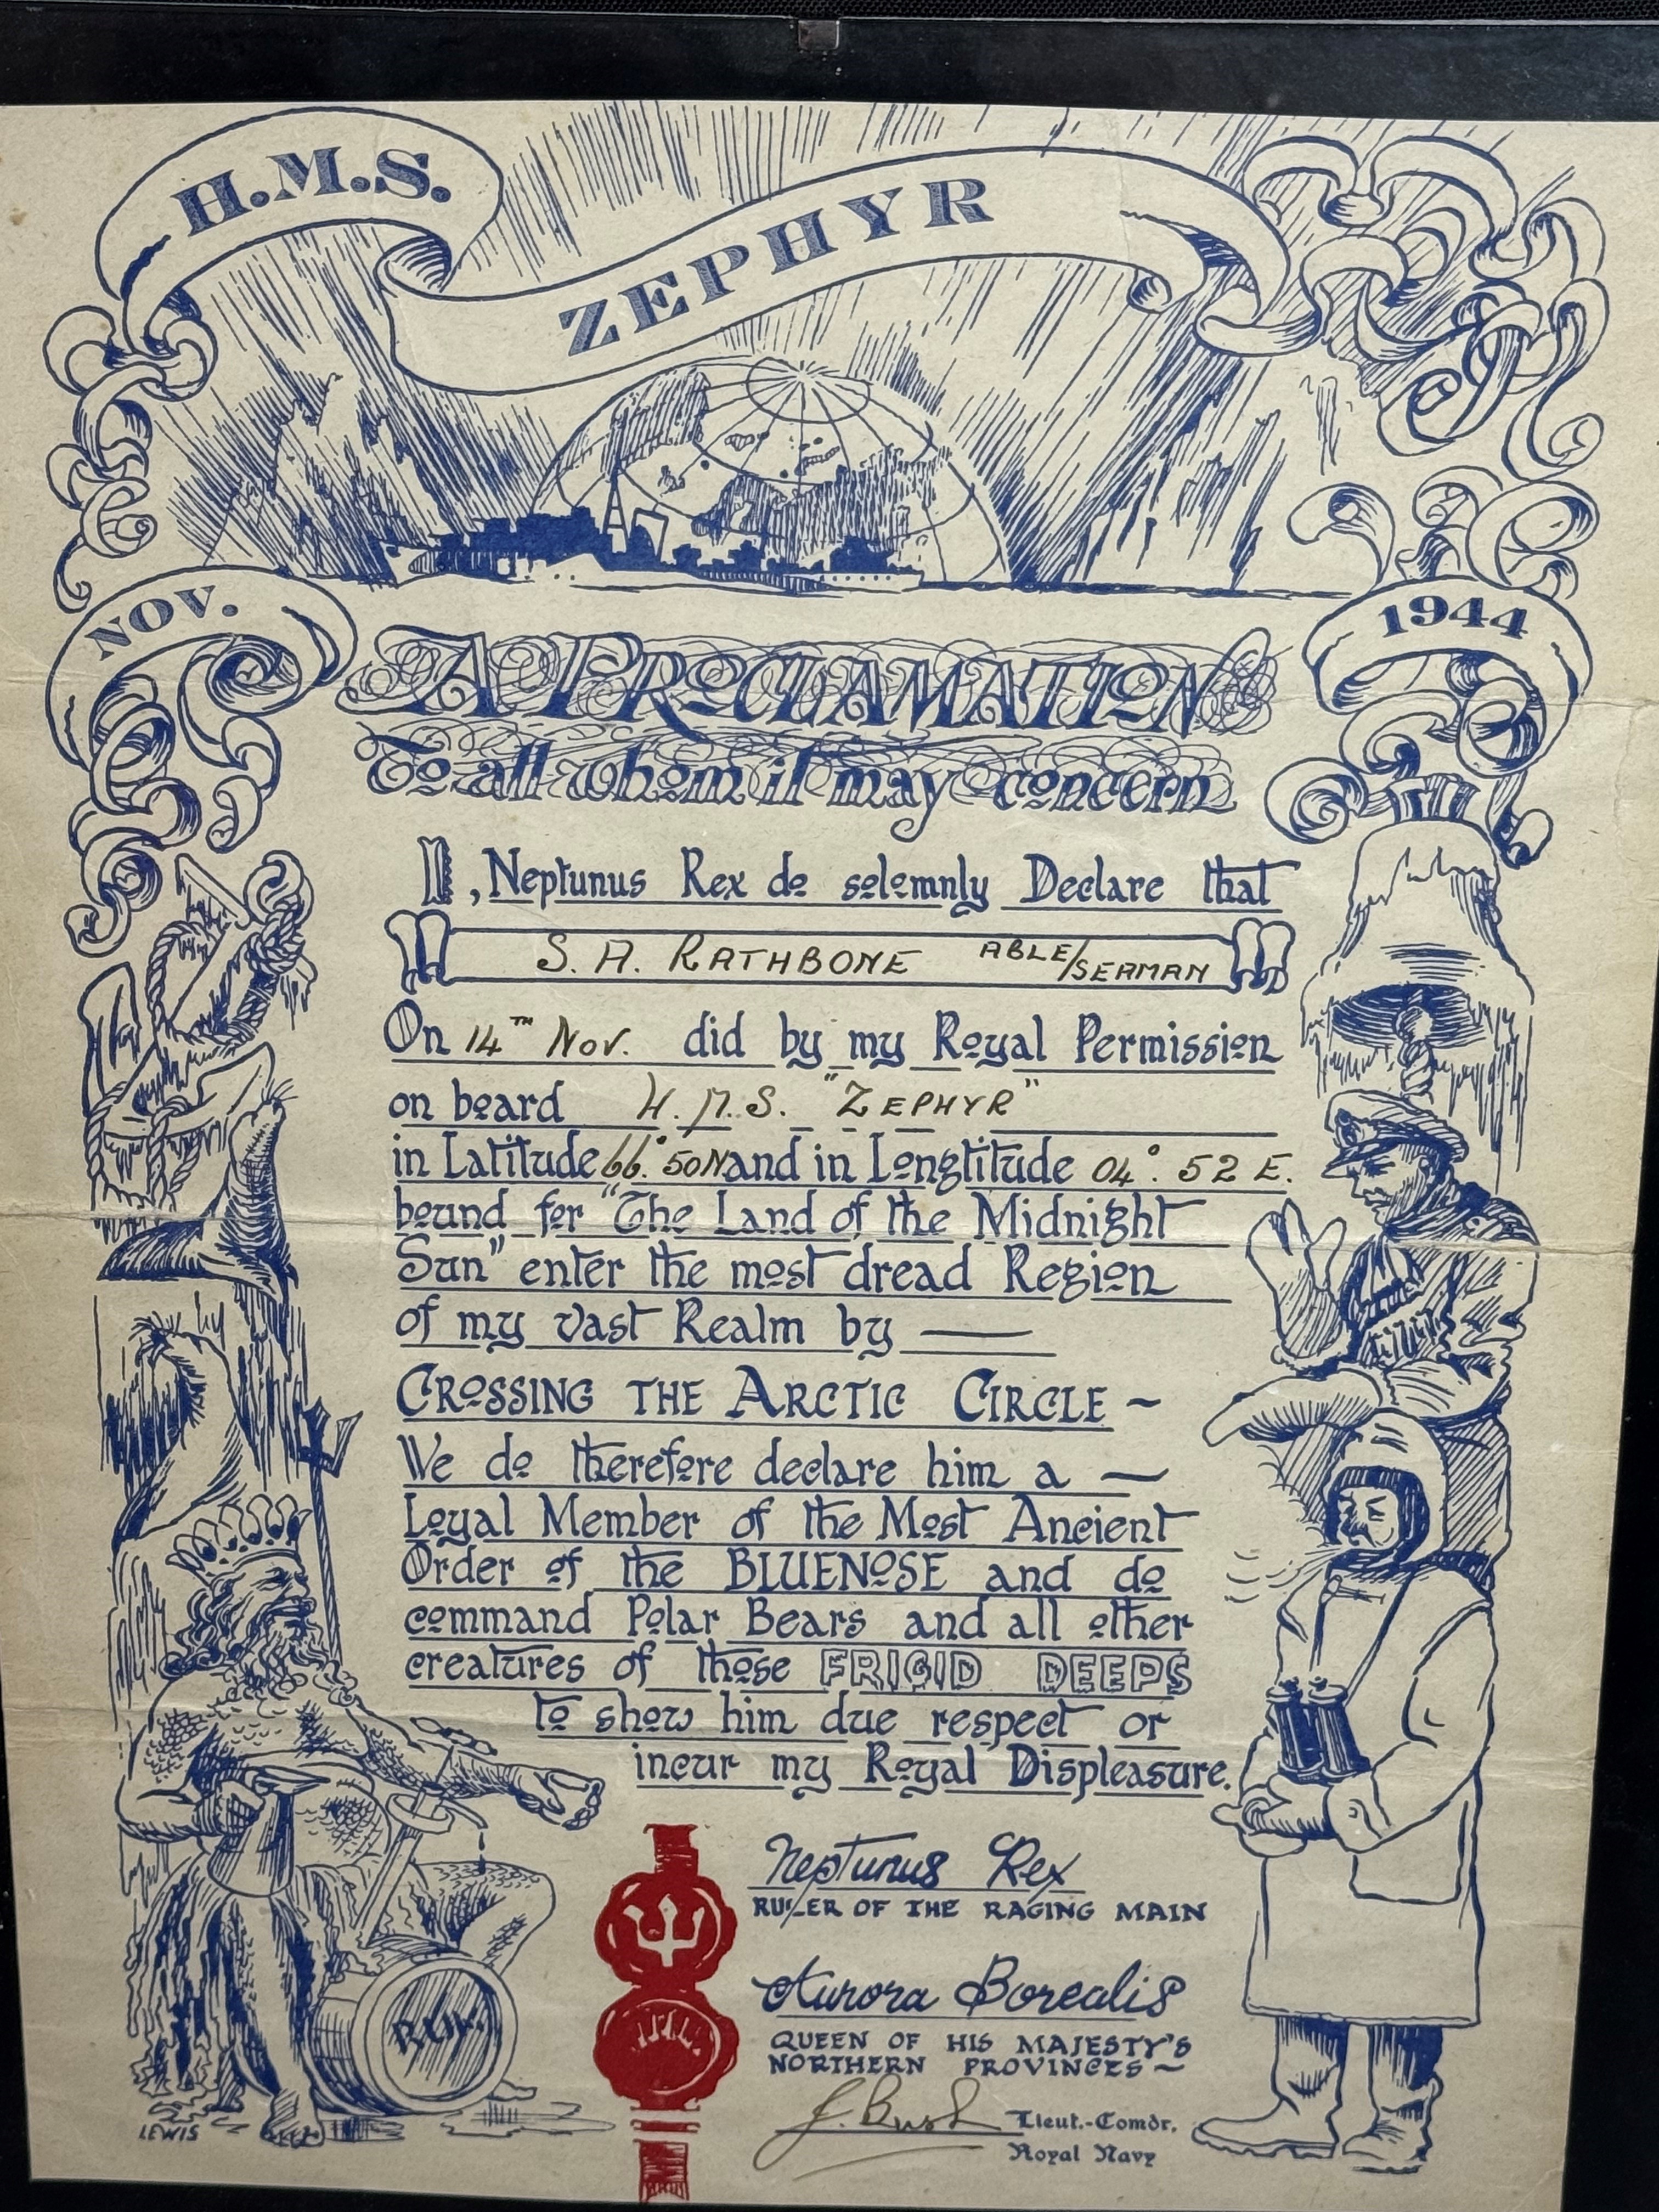 H.M.S.
ZEPHYR
NOV.
1944
A PROCLAMATION
To all whom it may concern
I, Neptunus Rex do solemnly Declare that
S. A. RATHBONE ABLE/SEAMAN
On 14TH Nov. did by my Royal Permission
on board H.M.S. "ZEPHYR"
in Latitude 66°. 50N and in Longtitude 04°. 52 E.
bound for "The Land of the Midnight
Sun" enter the most dread Region
of my vast Realm by —
CROSSING THE ARCTIC CIRCLE ~
We do therefore declare him a —
Loyal Member of the Most Ancient
Order of the BLUENOSE and do
command Polar Bears and all other
creatures of those FRIGID DEEPS
to show him due respect or
incur my Royal Displeasure.
Neptunus Rex
RULER OF THE RAGING MAIN
Aurora Borealis
QUEEN OF HIS MAJESTY'S
NORTHERN PROVINCES ~
J. Bush Lieut.-Comdr.
Royal Navy
RUM
LEWIS